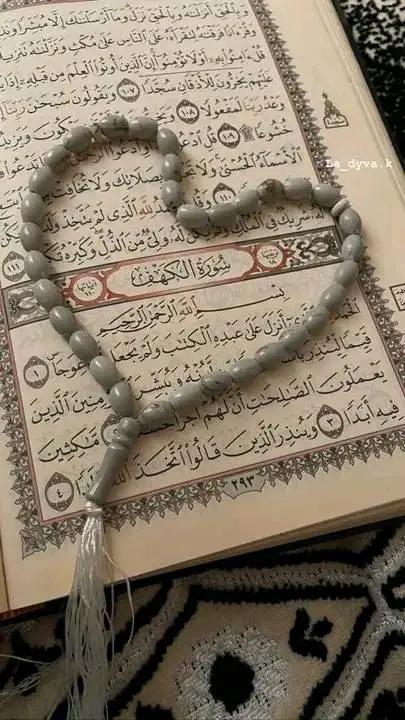 وَبِٱلْحَقِّ أَنزَلْنَٰهُ وَبِٱلْحَقِّ نَزَلَ وَمَآ أَرْسَلْنَٰكَ إِلَّا مُبَشِّرًا
وَقُرْءَانًا فَرَقْنَٰهُ لِتَقْرَأَهُۥ عَلَى ٱلنَّاسِ عَلَىٰ مُكْثٍ وَنَزَّلْنَٰهُ تَنزِيلًا
قُلْ ءَامِنُوا۟ بِهِۦٓ أَوْ لَا تُؤْمِنُوٓا۟ إِنَّ ٱلَّذِينَ أُوتُوا۟ ٱلْعِلْمَ مِن قَبْلِهِۦٓ إِذَا
عَلَيْهِمْ يَخِرُّونَ لِلْأَذْقَانِ سُجَّدًا ١٠٧ وَيَقُولُونَ سُبْحَٰنَ رَبِّنَآ
وَعْدُ رَبِّنَا لَمَفْعُولًا ١٠٨ وَيَبْكُونَ
خُشُوعًا ١٠٩ قُلِ ٱدْعُوا۟ أَوِ ٱدْعُوا۟
ٱلْأَسْمَآءُ ٱلْحُسْنَىٰ وَلَا بِصَلَاتِكَ وَلَا تُخَافِتْ
١١٠ وَقُلِ لِلَّهِ ٱلَّذِى لَمْ يَتَّخِذْ
شَرِيكٌ فِى ٱلْمُلْكِ وَلَمْ يَكُن لَّهُۥ وَلِىٌّ مِّنَ ٱلذُّلِّ وَكَبِّرْهُ ١١١
سُورَةُ الكَهْفِ
بِسْمِ ٱللَّهِ ٱلرَّحْمَٰنِ ٱلرَّحِيمِ
أَنزَلَ عَلَىٰ عَبْدِهِ ٱلْكِتَٰبَ وَلَمْ يَجْعَل عِوَجَا ١
قَيِّمًا لِّيُنذِرَ بَأْسًا
يَعْمَلُونَ ٱلصَّٰلِحَٰتِ أَنَّ لَهُمْ أَجْرًا مَّٰكِثِينَ
فِيهِ أَبَدًا ٣ وَيُنذِرَ ٱلَّذِينَ قَالُوا۟ ٱتَّخَذَ ٱللَّهُ ٤
٢٩٣
La_dyva.k